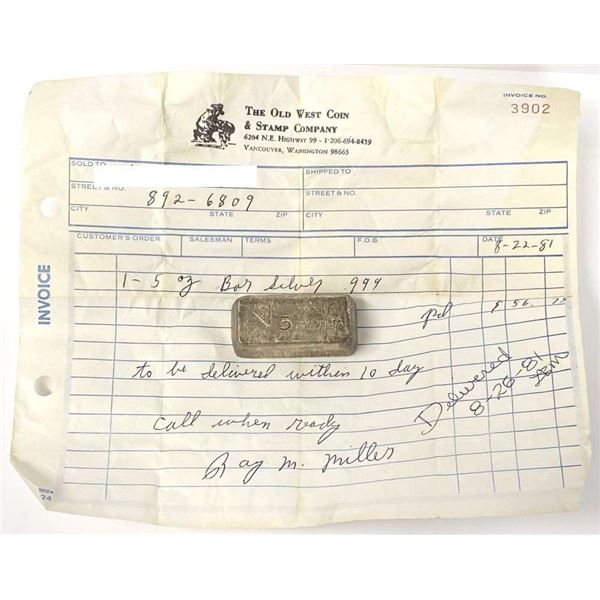 INVOICE NO.
3902
THE OLD WEST COIN
& STAMP COMPANY
6204 N.E. HIGHWAY 99 - 1-206-694-8459
VANCOUVER, WASHINGTON 98665
SOLD TO
SHIPPED TO
STREET & NO.
STREET & NO.
892-6809
CITY STATE ZIP
CITY STATE ZIP
CUSTOMER'S ORDER SALESMAN TERMS F.O.B. DATE
8-22-81
1 - 5 oz Bar Silver .999
5
pd $ 56.
to be delivered within 10 day
Delivered
8-26-81
call when ready
Ray M. Miller
INVOICE
24